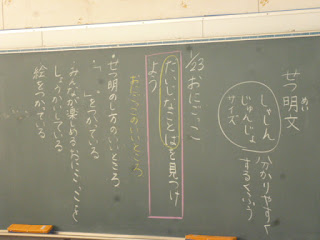 せつ明文
めい
しゃしん
じゅんじょ
サイズ
分かりやすく
するくふう
1/23 おにごっこ
だいじなことばを見つけ
よう
おにごっこのいいところ
・せつ明のし方のいいところ
・「 」をつかっている
・みんなが楽める
しょうかいしている
絵をつかっている